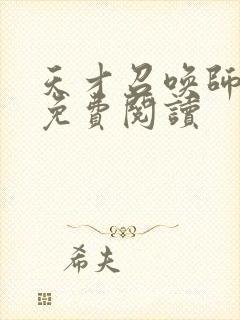 天才召喚師
免費閱讀
希夫